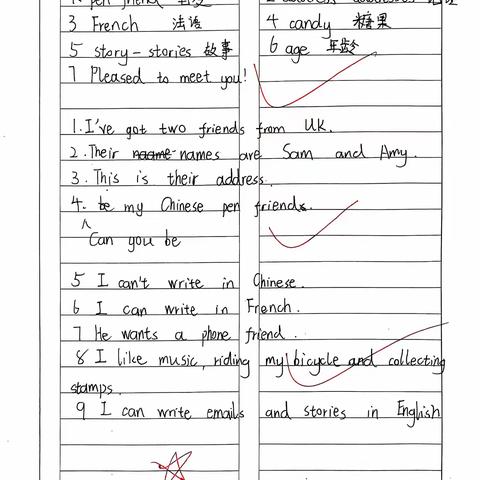 pen friend
3 French 法语 4 candy 糖果
5 story - stories 故事 6 age 年龄
7 Pleased to meet you!
1. I've got two friends from UK.
2. Their names are Sam and Amy.
3. This is their address.
4. be my Chinese pen friend.
Can you be
5 I can't write in Chinese.
6 I can write in French.
7 He wants a phone friend.
8 I like music, riding my bicycle and collecting
stamps.
9 I can write emails and stories in English